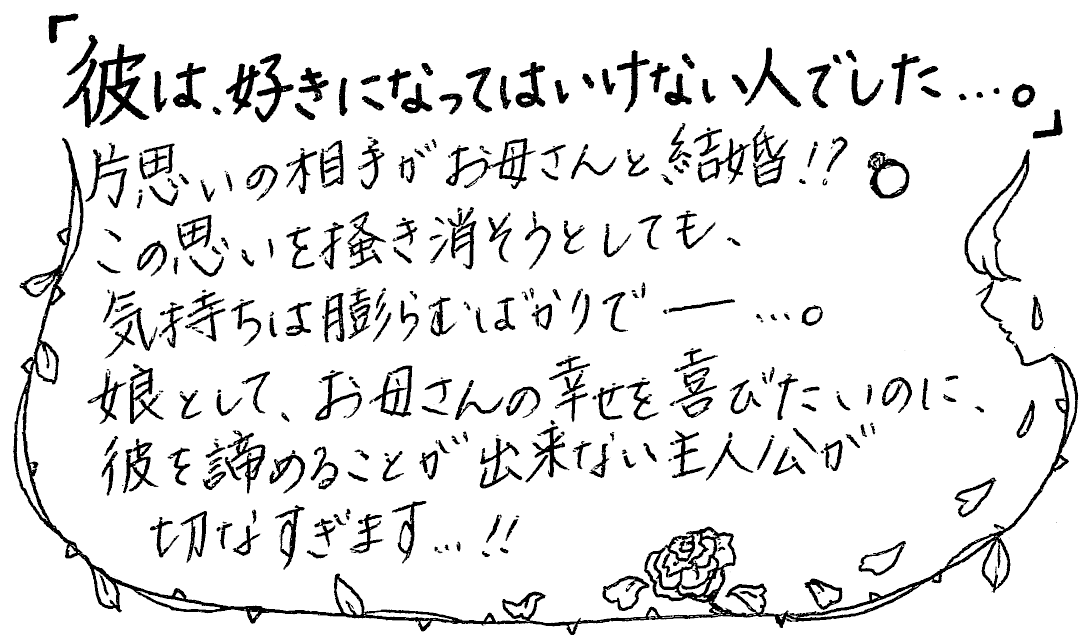 「彼は、好きになってはいけない人でした…。」
片思いの相手がお母さんと、結婚!?
この思いを掻き消そうとしても、
気持ちは膨らむばかりで ― …。
娘として、お母さんの幸せを喜びたいのに、
彼を諦めることが出来ない主人公が
切なすぎます…!!